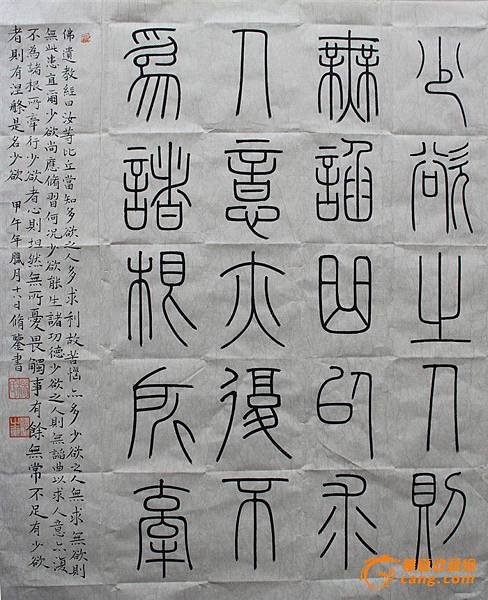 少欲之人則
無諂曲以求
人意亦復不
為諸根所牽
佛遺教經曰汝等比丘當知多欲之人多求利故苦惱亦多少欲之人無求無欲則
無此患直爾少欲尚應脩習何況少欲能生諸功德少欲之人則無諂曲以求人意亦復
不為諸根所牽行少欲者心則坦然無所憂畏觸事有餘無常不足有少欲
者則有涅槃是名少欲 甲午年臘月十六日脩鋻書
cang.com